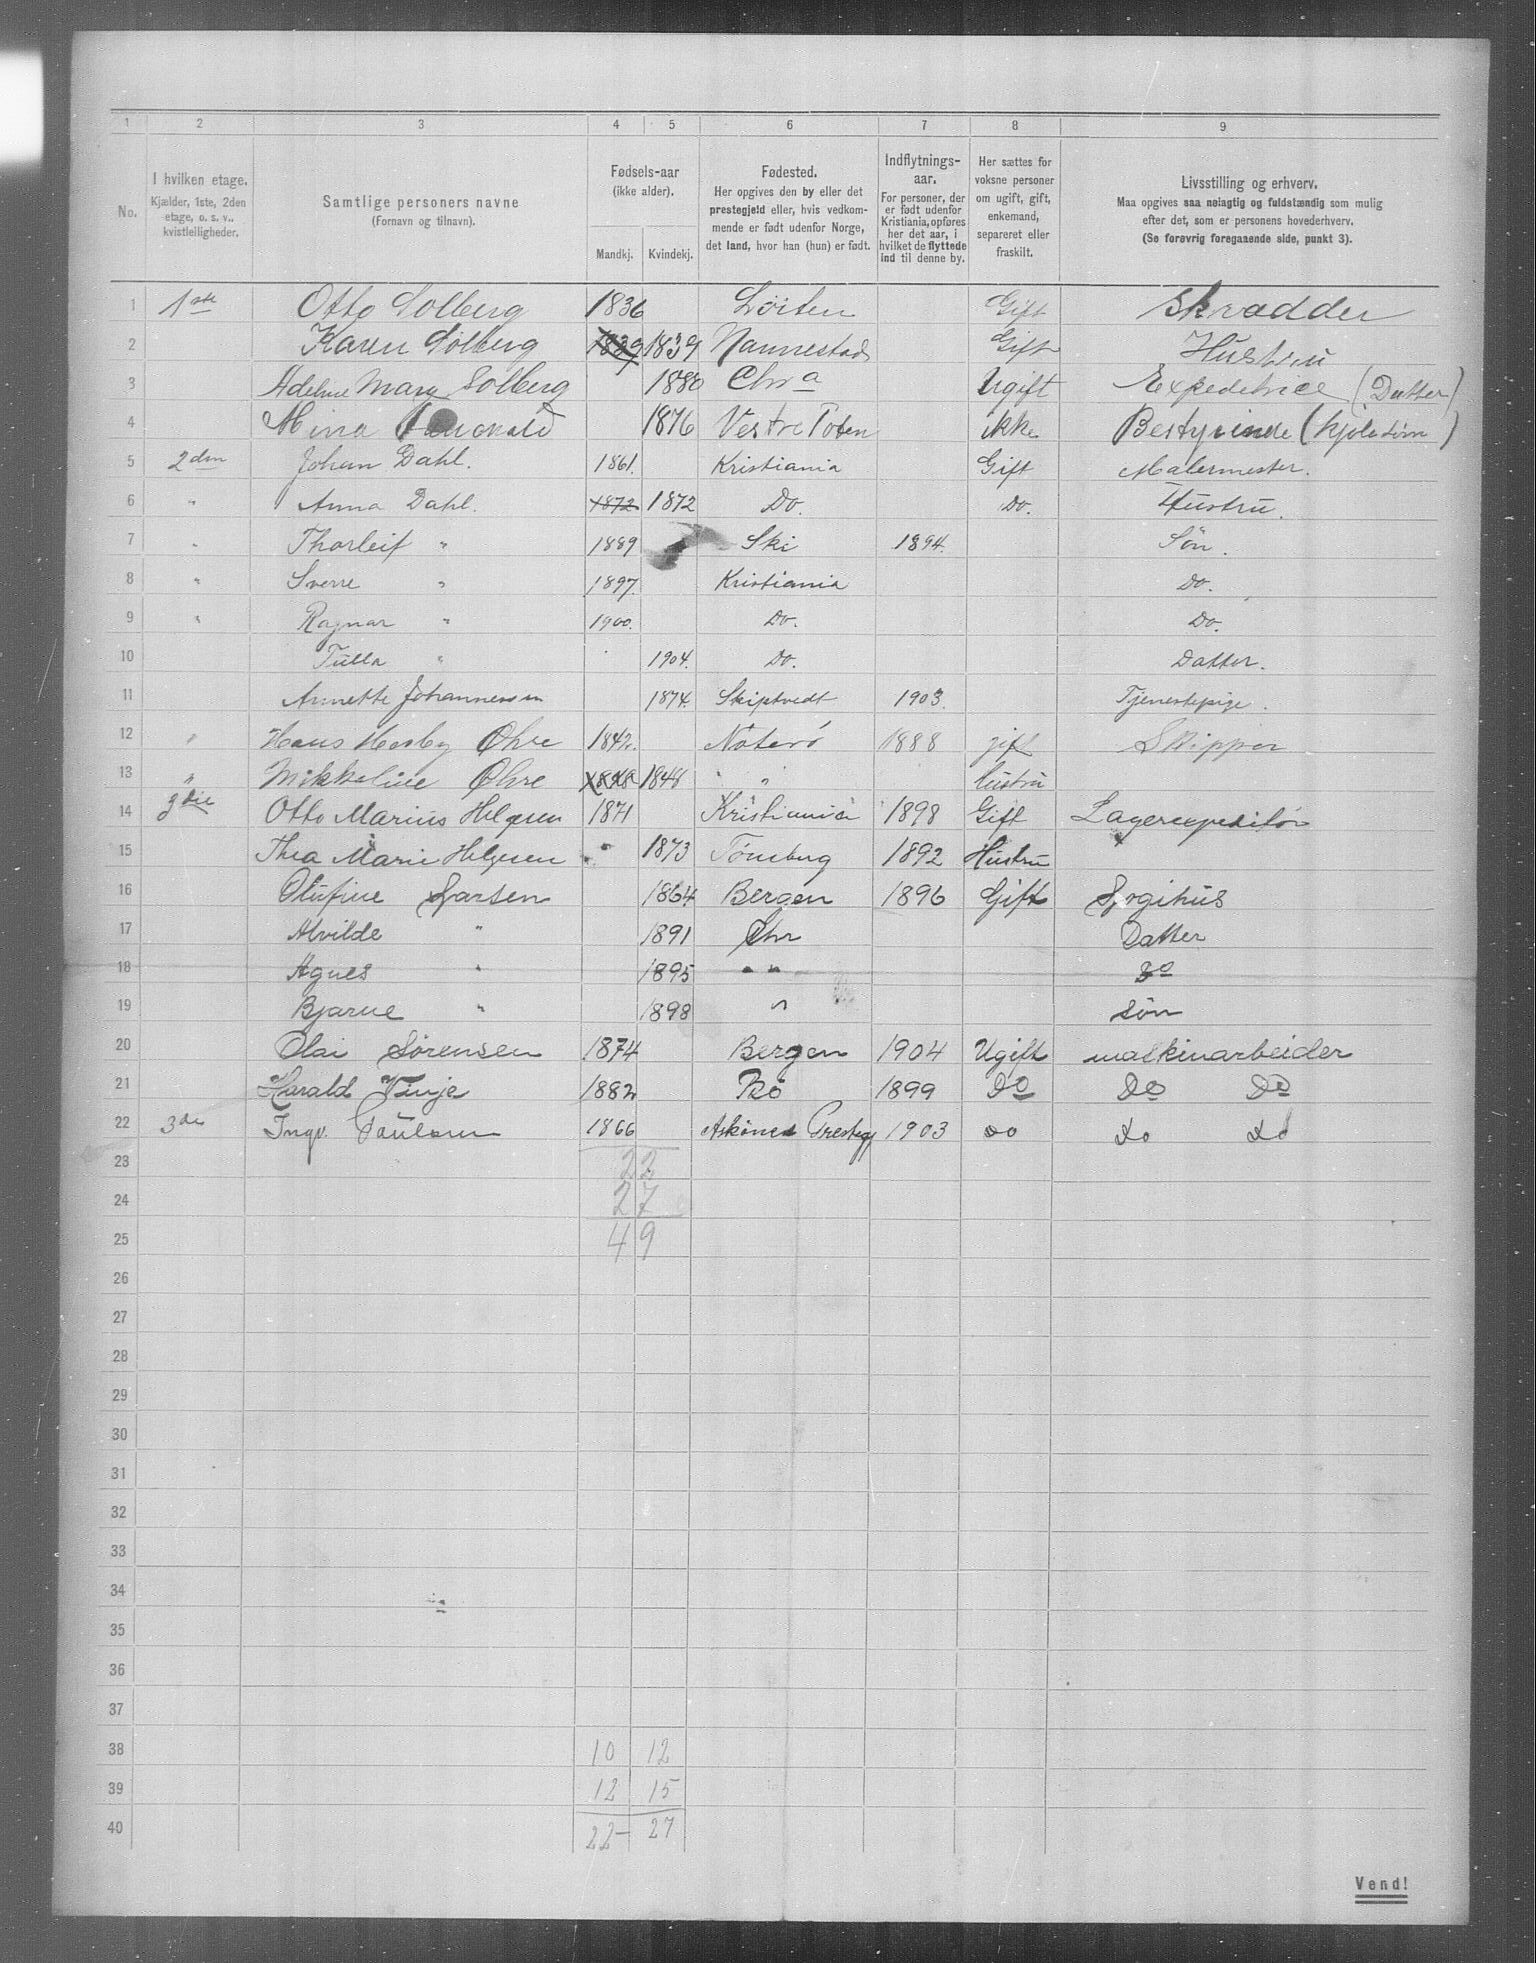 1 2 3 4 5 6 7 8 9
No. I hvilken etage. Kjælder, 1ste, 2den etage, o. s. v., kvistleiligheder. Samtlige personers navne (Fornavn og tilnavn). Fødsels-aar (ikke alder). Mandkj. Kvindekj. Fødested. Her opgives den by eller det prestegjeld eller, hvis vedkommende er født udenfor Norge, det land, hvor han (hun) er født. Indflytnings-aar. For personer, der er født udenfor Kristiania, opføres her det aar, i hvilket de flyttede ind til denne by. Her sættes for voksne personer om ugift, gift, enkemand, separeret eller fraskilt. Livsstilling og erhverv. Maa opgives saa nøiagtig og fuldstændig som mulig efter det, som er personens hovederhverv. (Se forøvrig foregaaende side, punkt 3).
1 1ste Otto Solberg 1836 Löiten Gift Skrædder
2 Karen Solberg 1839 1839 Nannestad Gift Hustru
3 Adeline Mary Solberg 1880 Chr a Ugift Expeditrice (Datter)
4 Mina 1876 Vestre Toten ikke Bestyrinde (Kjolesøm)
5 2den Johan Dahl. 1861. Kristiania Gift Malermester.
6 " Anna Dahl. 1872 1872 Do. Do. Hustru.
7 " Thorleif " 1889 Ski 1894. Søn.
8 " Sverre " 1897. Kristiania Do.
9 " Ragnar " 1900. Do. Do.
10 Tulla " 1904. Do. Datter.
11 Annette Johannessen 1874. Skiptvedt 1903. Tjenestepige.
12 " Hans Høsby Øhre 1842. Nøterö 1888 gift Skipper
13 " Mikkeline Øhre 1848 1848 " " Hustru
14 3die Otto Marius Helgesen 1871 Kristiania 1898 Gift Lagerexpeditör
15 Thea Marie Helgesen " 1873 Tönsberg 1892 Hustru
16 Olufine Sjørsen 1864 Bergen 1896 Gift Spogihus
17 Alvilde " 1891 Chr Datter
18 Agnes " 1895 " " Do
19 Bjarne " 1898 " Søn
20 Olai Sörensen 1874 Bergen 1904 Ugift maskinarbeider
21 Harald Vinje 1882 Bö 1899 Do Do Do
22 3die Ingv. Paulsen 1866 Askönes Prestegj 1903 Do Do Do
23 22
24 27
25 49
26
27
28
29
30
31
32
33
34
35
36
37
38 10 12
39 12 15
40 22 - 27
Vend!